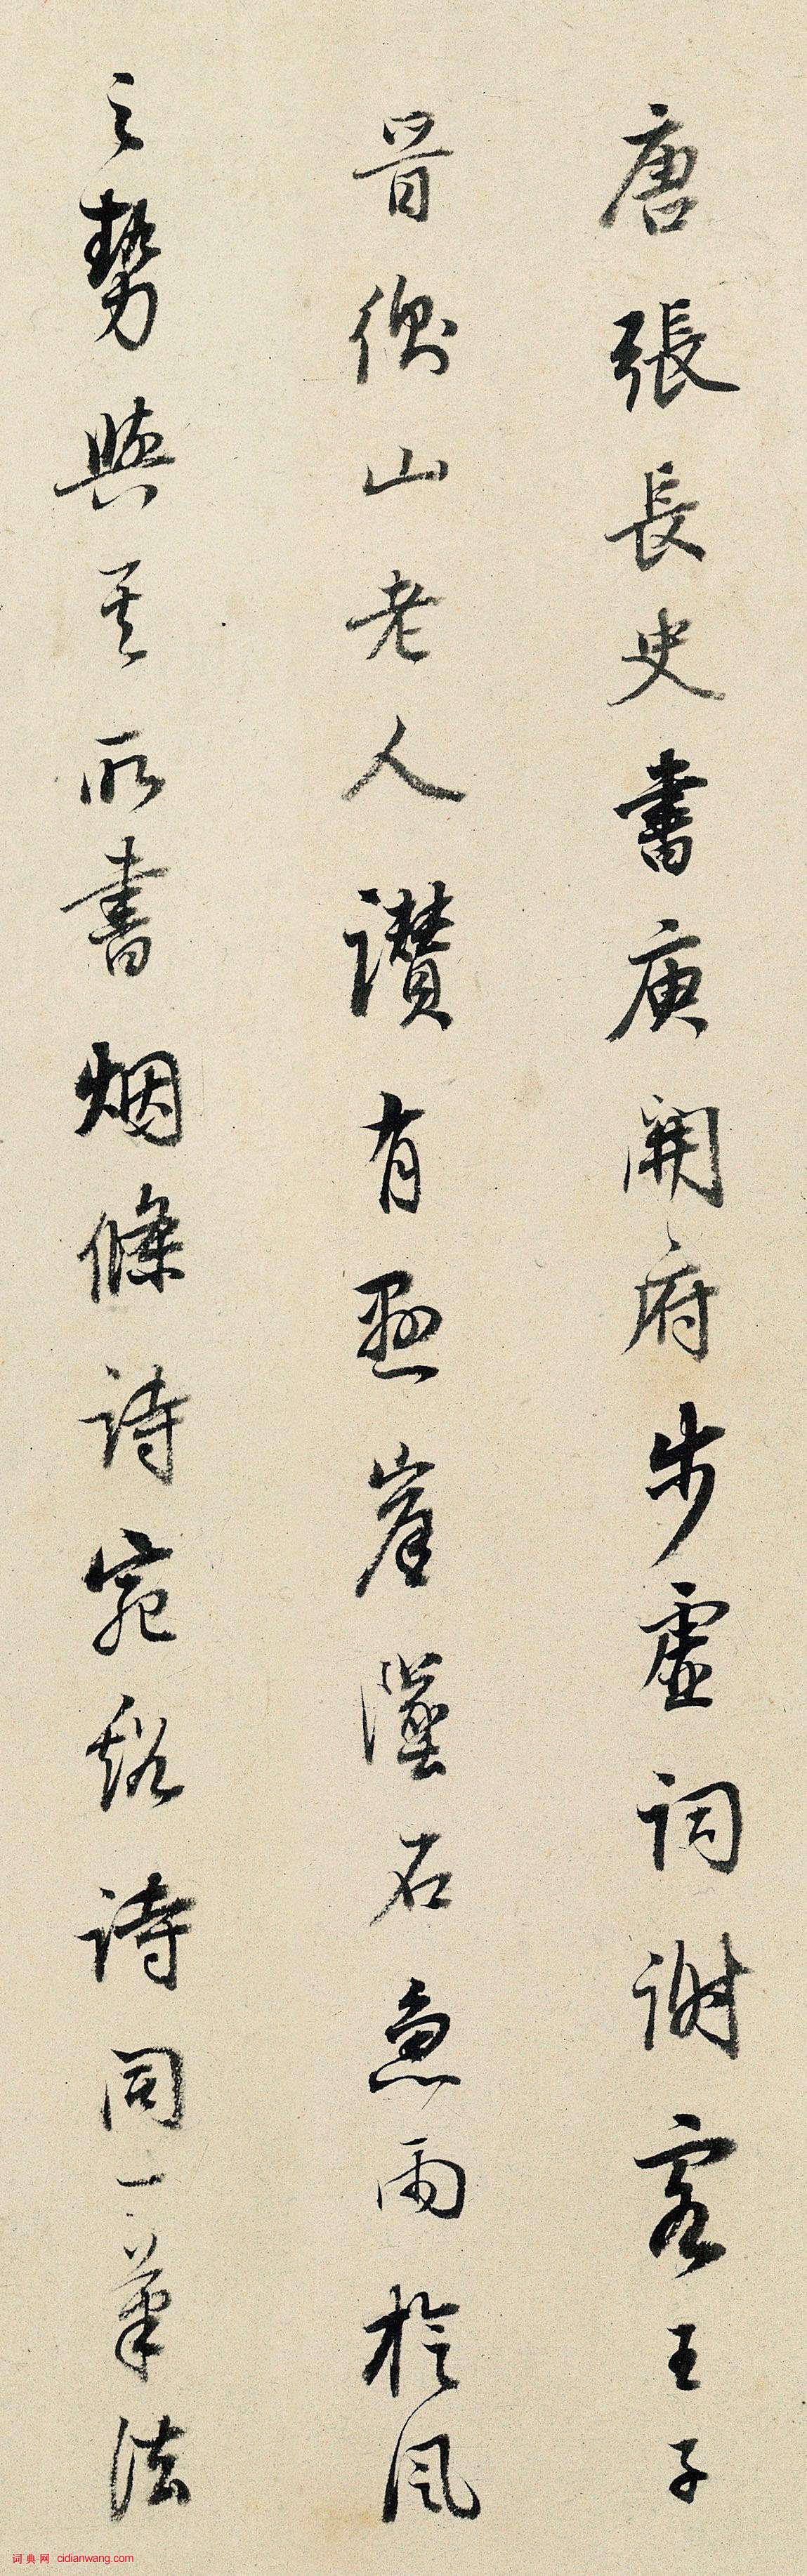 唐張長史書庾開府步虛詞謝客王子
晉衡山老人讚有懸崖墜石急雨旋風
之勢與其所書烟條詩宛谿詩同一筆法
词典网 cidianwang.com